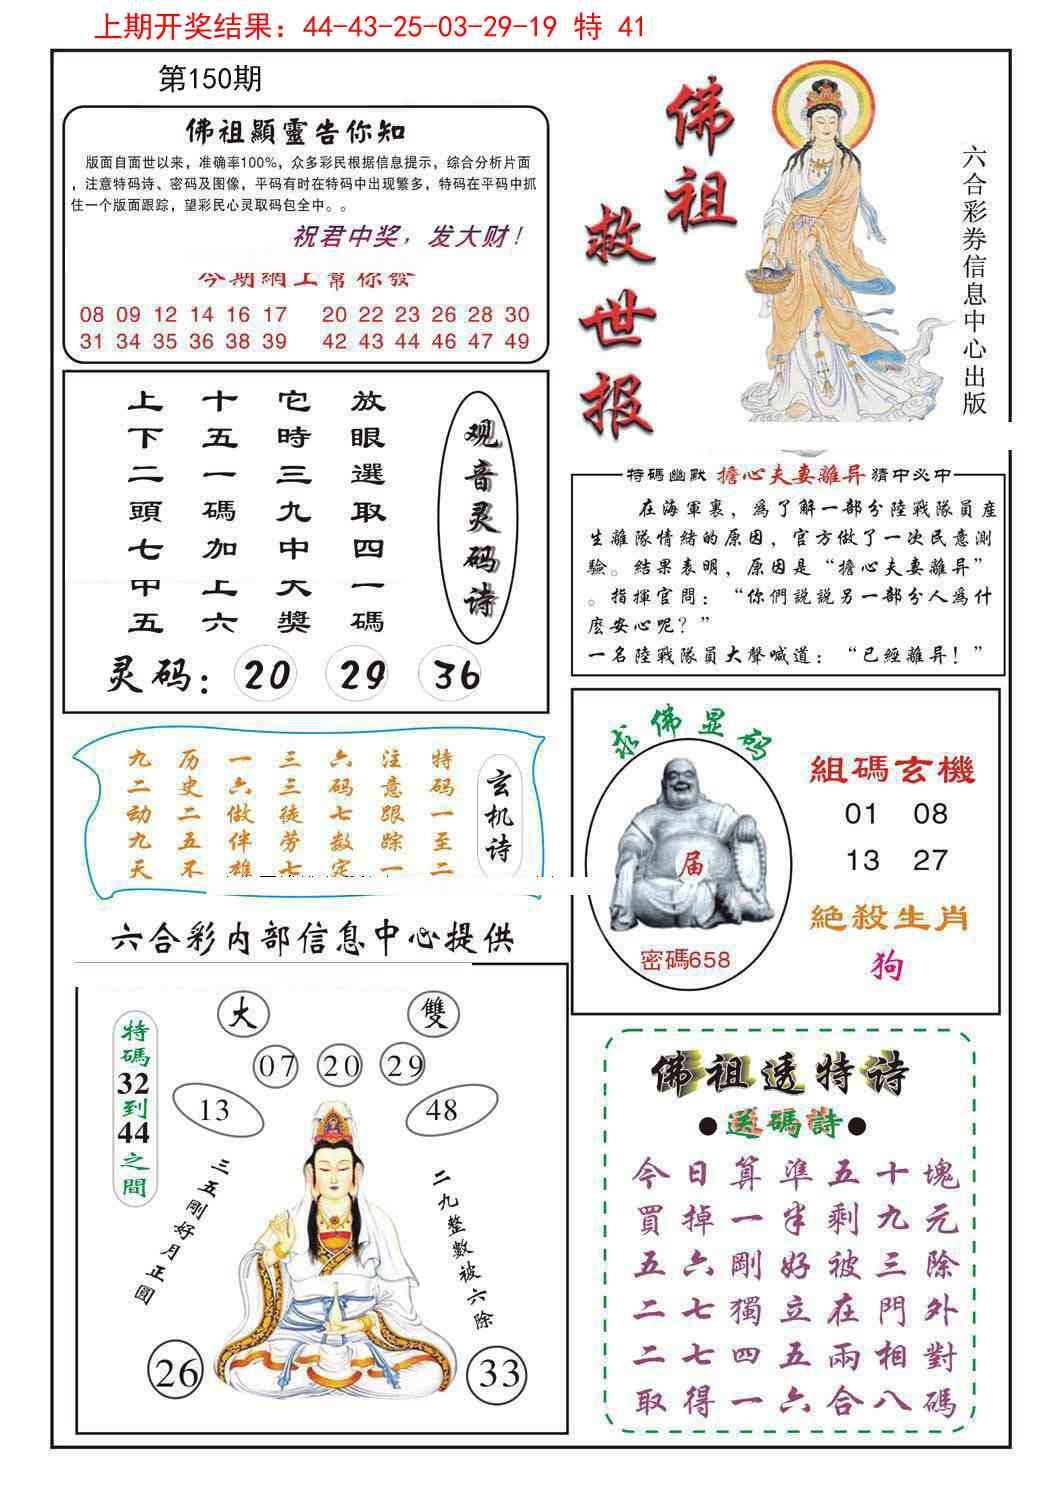 上期开奖结果：44-43-25-03-29-19 特 41
第150期
佛祖顯靈告你知
版面自面世以来，准确率100%，众多彩民根据信息提示，综合分析片面
，注意特码诗、密码及图像，平码有时在特码中出现繁多，特码在平码中抓
住一个版面跟踪，望彩民心灵取码包全中。。
祝君中奖，发大财！
今期網上幫你發
08 09 12 14 16 17 20 22 23 26 28 30
31 34 35 36 38 39 42 43 44 46 47 49
佛祖
救世报
六合彩券信息中心出版
上十它放
下五時眼
二一三選
頭碼九取
七加中四
中上大一
五六獎碼
观音灵码诗
灵码：20 29 36
特碼幽默 擔心夫妻離异 猜中必中
在海軍裏，爲了解一部分陸戰隊員産
生離隊情緒的原因，官方做了一次民意測
驗。結果表明，原因是“擔心夫妻離异”
。指揮官問：“你們説説另一部分人爲什
麽安心呢？”
一名陸戰隊員大聲喊道：“已經離异！”
九历一三六注特
二史六三码意码
动二做徒七跟一
九五伴劳数踪至
天不雄七定一二
玄机诗
求佛显码
届
密碼658
組碼玄機
01 08
13 27
絕殺生肖
狗
六合彩内部信息中心提供
大 雙
07 20 29
13 48
特碼32到44之間
三五剛好月正圓
二九整數被六除
26 33
佛祖透特诗
●送碼詩●
今日算準五十塊
買掉一半剩九元
五六剛好被三除
二七獨立在門外
二七四五兩相對
取得一六合八碼